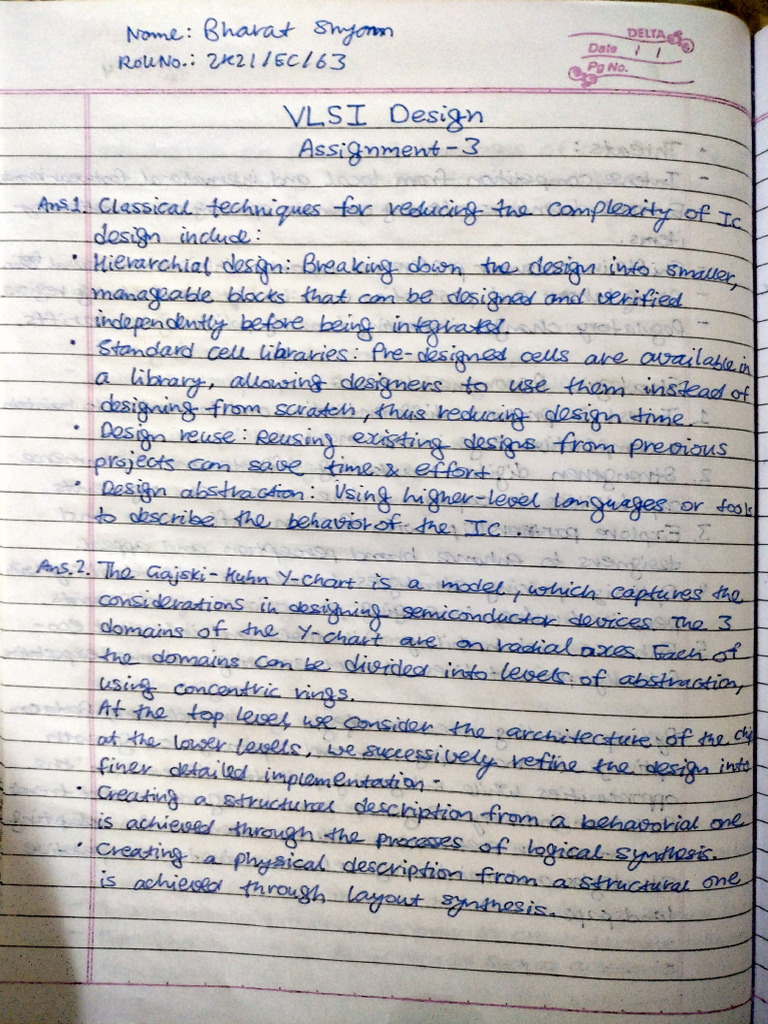 Name: Bharat Shyam
Roll No.: 2K21/EC/63
DELTA
Date / /
Pg No.
VLSI Design
Assignment-3
Ans.1. Classical techniques for reducing the complexity of IC
design include:
• Hierarchial design: Breaking down the design into smaller,
manageable blocks that can be designed and verified
independently before being integrated.
• Standard cell libraries: Pre-designed cells are available in
a library, allowing designers to use them instead of
designing from scratch, thus reducing design time.
• Design reuse: Reusing existing designs from previous
projects can save time & effort.
• Design abstraction: Using higher-level languages or tools
to describe the behavior of the IC.
Ans.2. The Gajski-Kuhn Y-chart is a model, which captures the
considerations in designing semiconductor devices. The 3
domains of the Y-chart are on radial axes. Each of
the domains can be divided into levels of abstraction,
using concentric rings.
At the top level, we consider the architecture of the chip
at the lower levels, we successively refine the design into
finer detailed implementation.
• Creating a structural description from a behavorial one
is achieved through the processes of logical synthesis.
• Creating a physical description from a structural one
is achieved through layout synthesis.